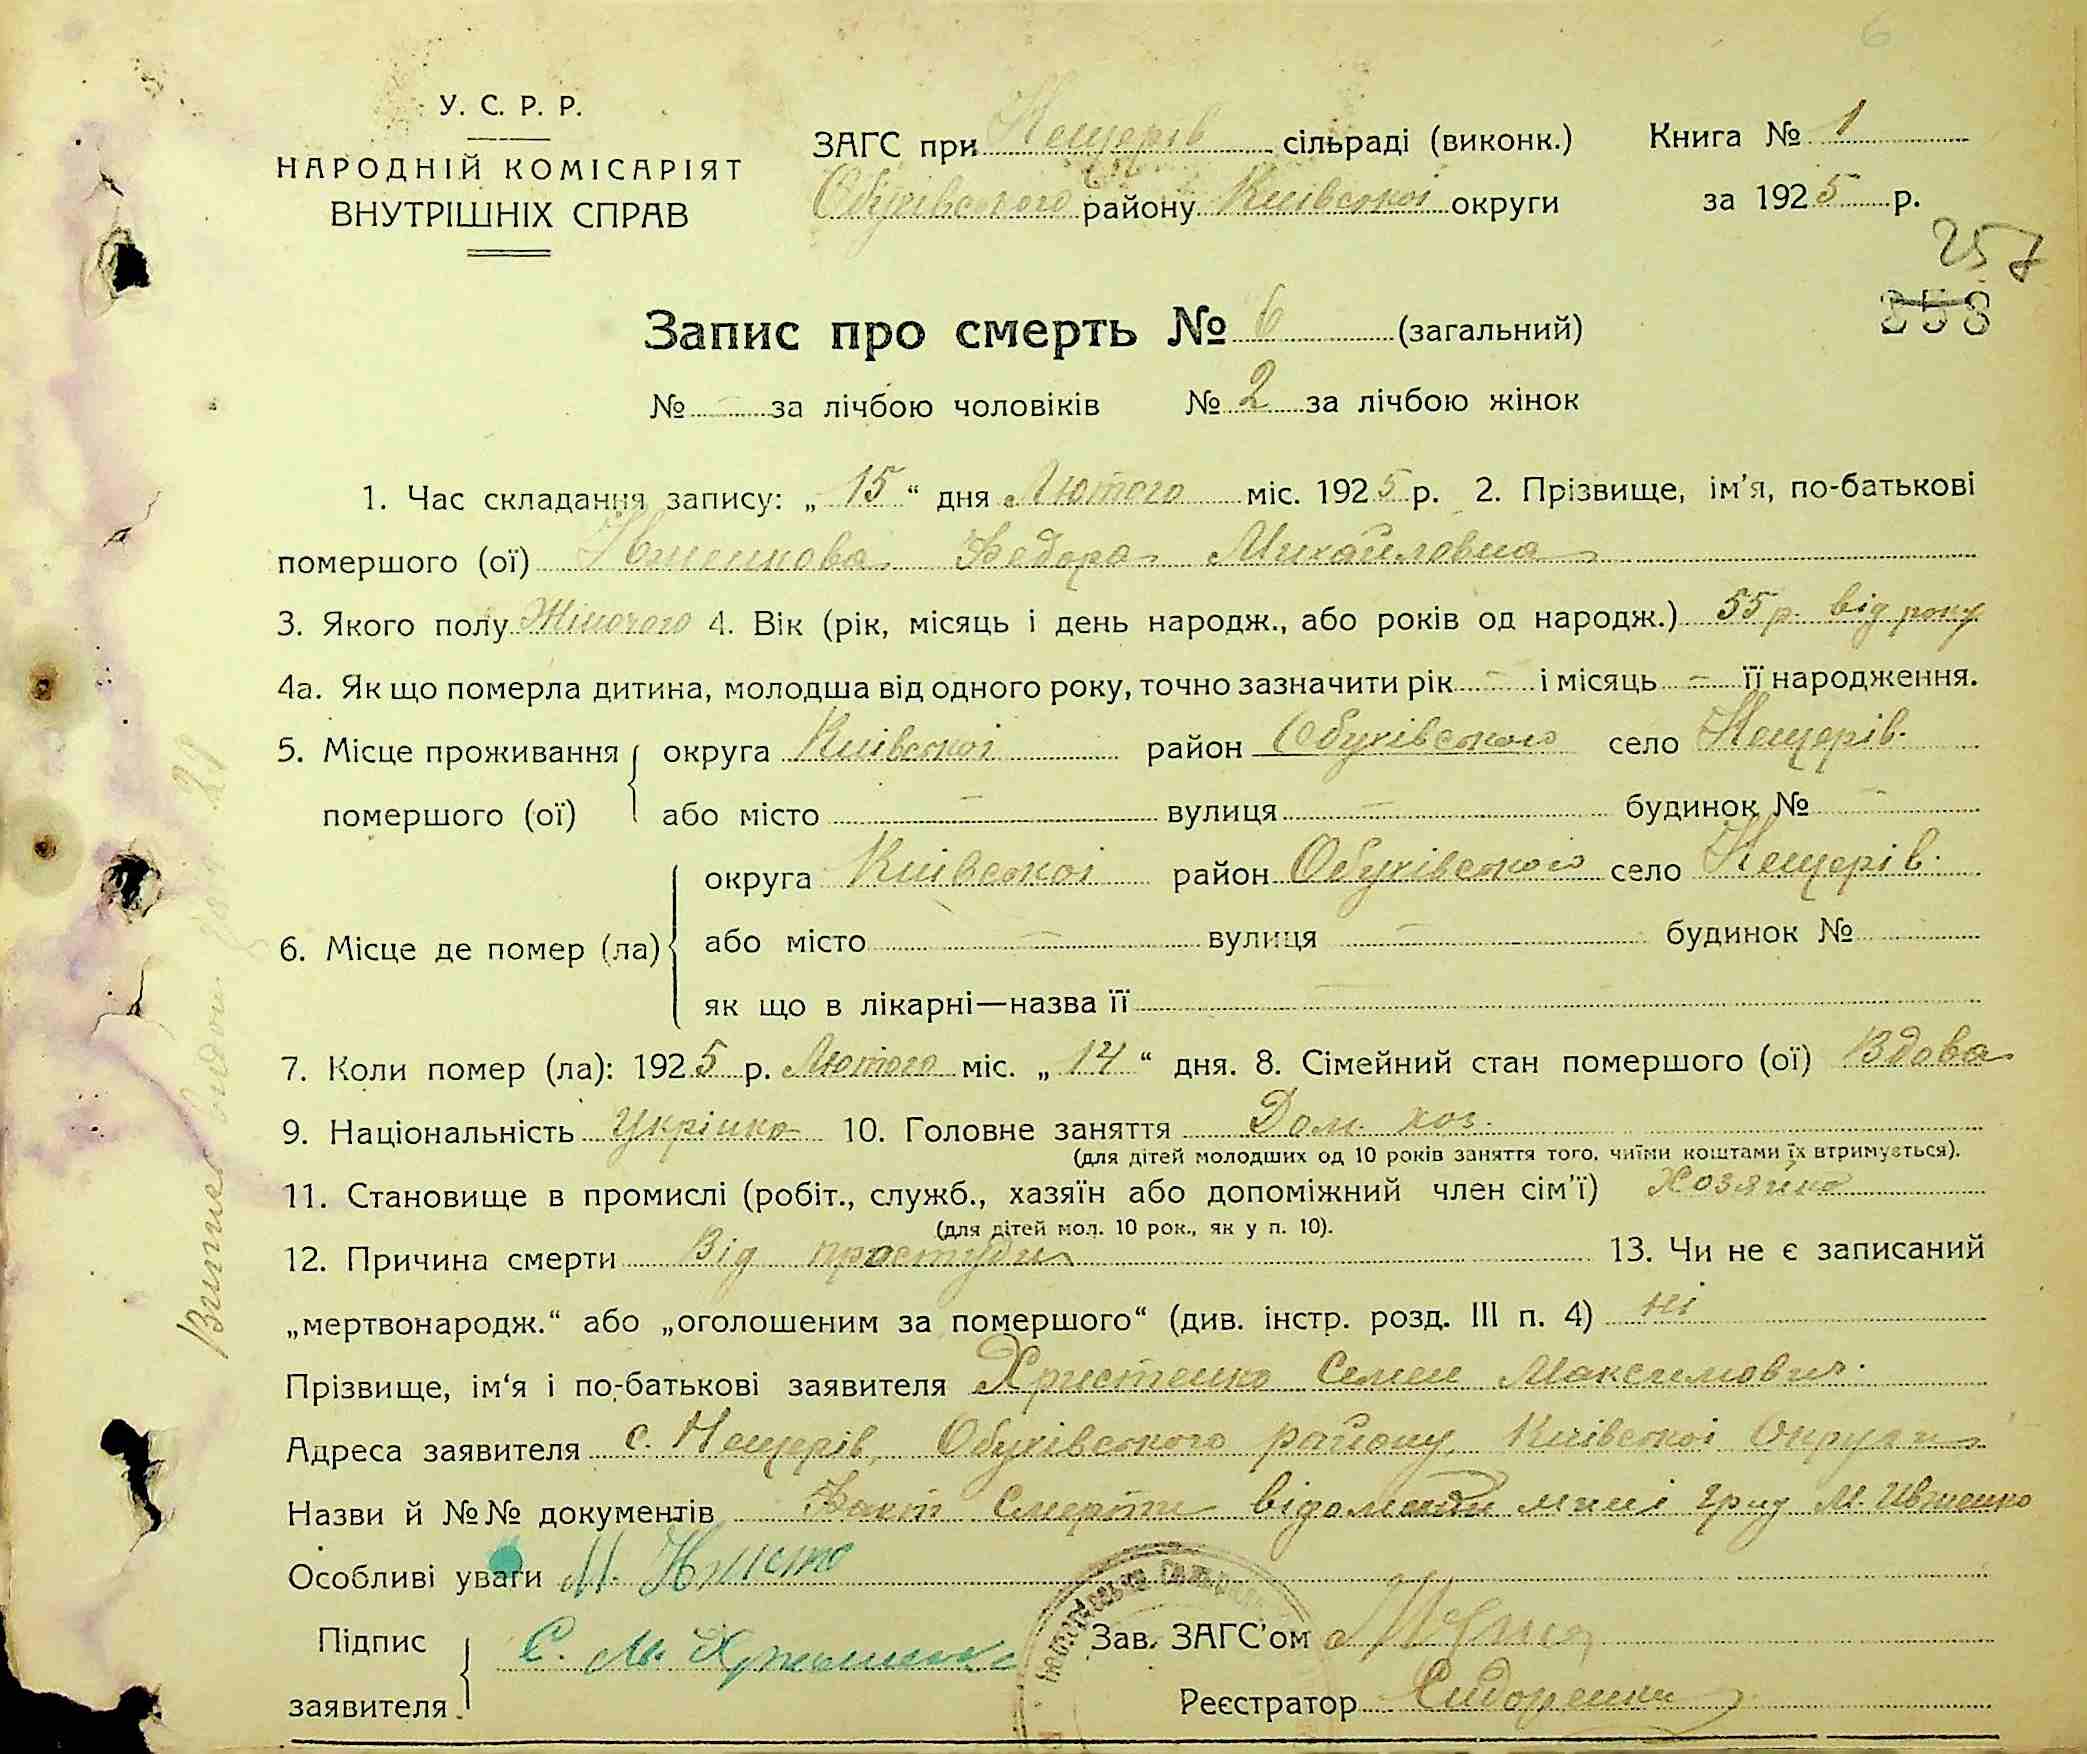 6
У. С. Р. Р.
НАРОДНІЙ КОМІСАРІЯТ
ВНУТРІШНІХ СПРАВ
ЗАГС при Нещерів сільраді (виконк.)
Обухівського району Київської округи
Книга № 1
за 1925 р.
257
Запис про смерть № 6 (загальний)
№ – за лічбою чоловіків № 2 за лічбою жінок
1. Час складання запису: „ 15 “ дня Лютого міс. 1925 р. 2. Прізвище, ім'я, по-батькові
помершого (ої) Федора Михайловна
3. Якого полу Жіночого 4. Вік (рік, місяць і день народж., або років од народж.) 55 р. від року
4а. Як що померла дитина, молодша від одного року, точно зазначити рік – і місяць – її народження.
5. Місце проживання округа Київської район Обухівського село Нещерів.
помершого (ої) або місто – вулиця – будинок № –
округа Київської район Обухівського село Нещерів.
6. Місце де помер (ла) або місто – вулиця – будинок №
як що в лікарні—назва її –
7. Коли помер (ла): 1925 р. Лютого міс. „ 14 “ дня. 8. Сімейний стан помершого (ої) Вдова
9. Національність Укрінка 10. Головне заняття Дом. хоз.
(для дітей молодших од 10 років заняття того, чиїми коштами їх втримується).
11. Становище в промислі (робіт., служб., хазяїн або допоміжний член сім'ї) Хозяйка
(для дітей мол. 10 рок., як у п. 10).
12. Причина смерти Від простуди 13. Чи не є записаний
„мертвонародж.“ або „оголошеним за помершого“ (див. інстр. розд. III п. 4) ні
Прізвище, ім'я і по-батькові заявителя Христенко Семен Максимович.
Адреса заявителя с. Нещерів, Обухівського району Київської Округи
Назви й №№ документів Факт Смерти відомий мині грид М. Ившенко
Особливі уваги М.
Підпис С. М. Христенко Зав. ЗАГС'ом
заявителя Реєстратор Сидоренко